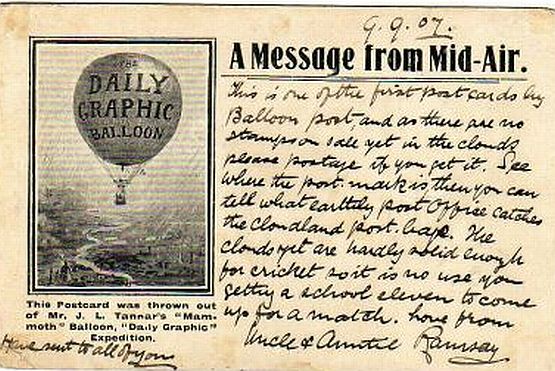 9.9.07.
A Message from Mid-Air.
THE
DAILY
GRAPHIC
BALLOON
This is one of the first post cards by
Balloon post, and as there are no
stamps on sale yet in the clouds
please postage if you get it. See
where the post-mark is, then you can
tell what earthly post Office catches
the cloudland post bags. The
clouds yet are hardly solid enough
for cricket so it is no use you
getting a school eleven to come
up for a match. Love from
Uncle & Auntie Ramsay
This Postcard was thrown out
of Mr. J. L. Tannar's "Mam-
moth" Balloon, "Daily Graphic"
Expedition.
Have sent to all of you